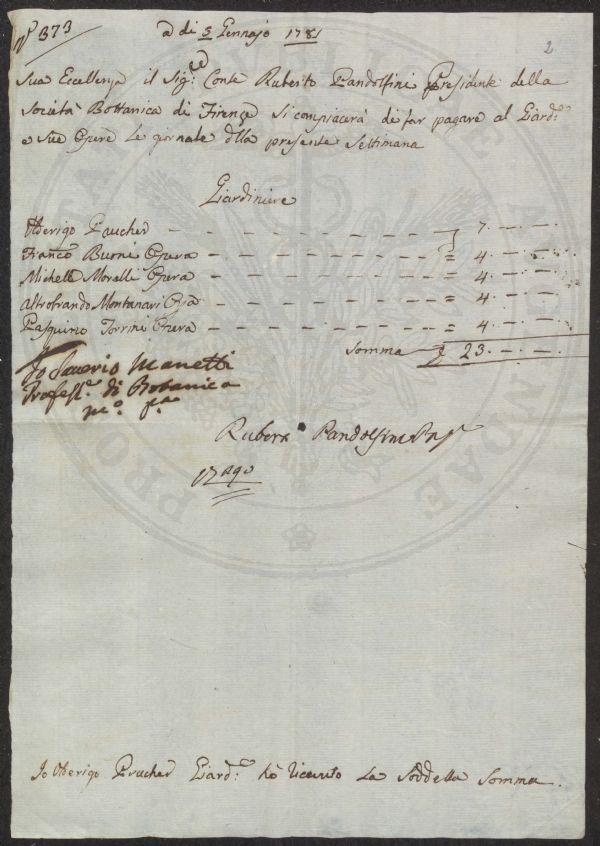 N° 373
a di 5 Gennajo 1781
2
Sua Eccellenza il Sig.re Conte Ruberto Pandolfini Presidente della
Società Bottanica di Firenze si compiacerà di far pagare al Giard.re
e sue Opere le giornate della presente Settimana
Giardiniere
Ulderigo Prucher — — — — — — — — 7 . — . —
Franco Buoni Opera — — — — — — = 4 . — . —
Michelle Moralli Opera — — — — — — = 4 . — . —
Altobrando Montanari Opa — — — — — = 4 . — . —
Pasquino Torrini Opera — — — — — — = 4 . — . —
Somma 23 . — . —
Io Saverio Manetti
Profess.e di Botanica
mo. pa.
Ruberto Pandolfini
Io Ulderigo Prucher Giard.re hò riceuto la Soddetta Somma
PRO